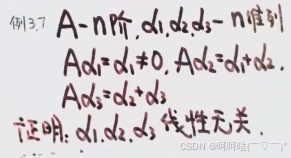 例3.7 A-n阶, α₁,α₂,α₃-n维列
Aα₁=α₁≠0, Aα₂=α₁+α₂,
Aα₃=α₂+α₃
证明: α₁,α₂,α₃线性无关.
CSDN @呵呵哒(￣▽￣)"